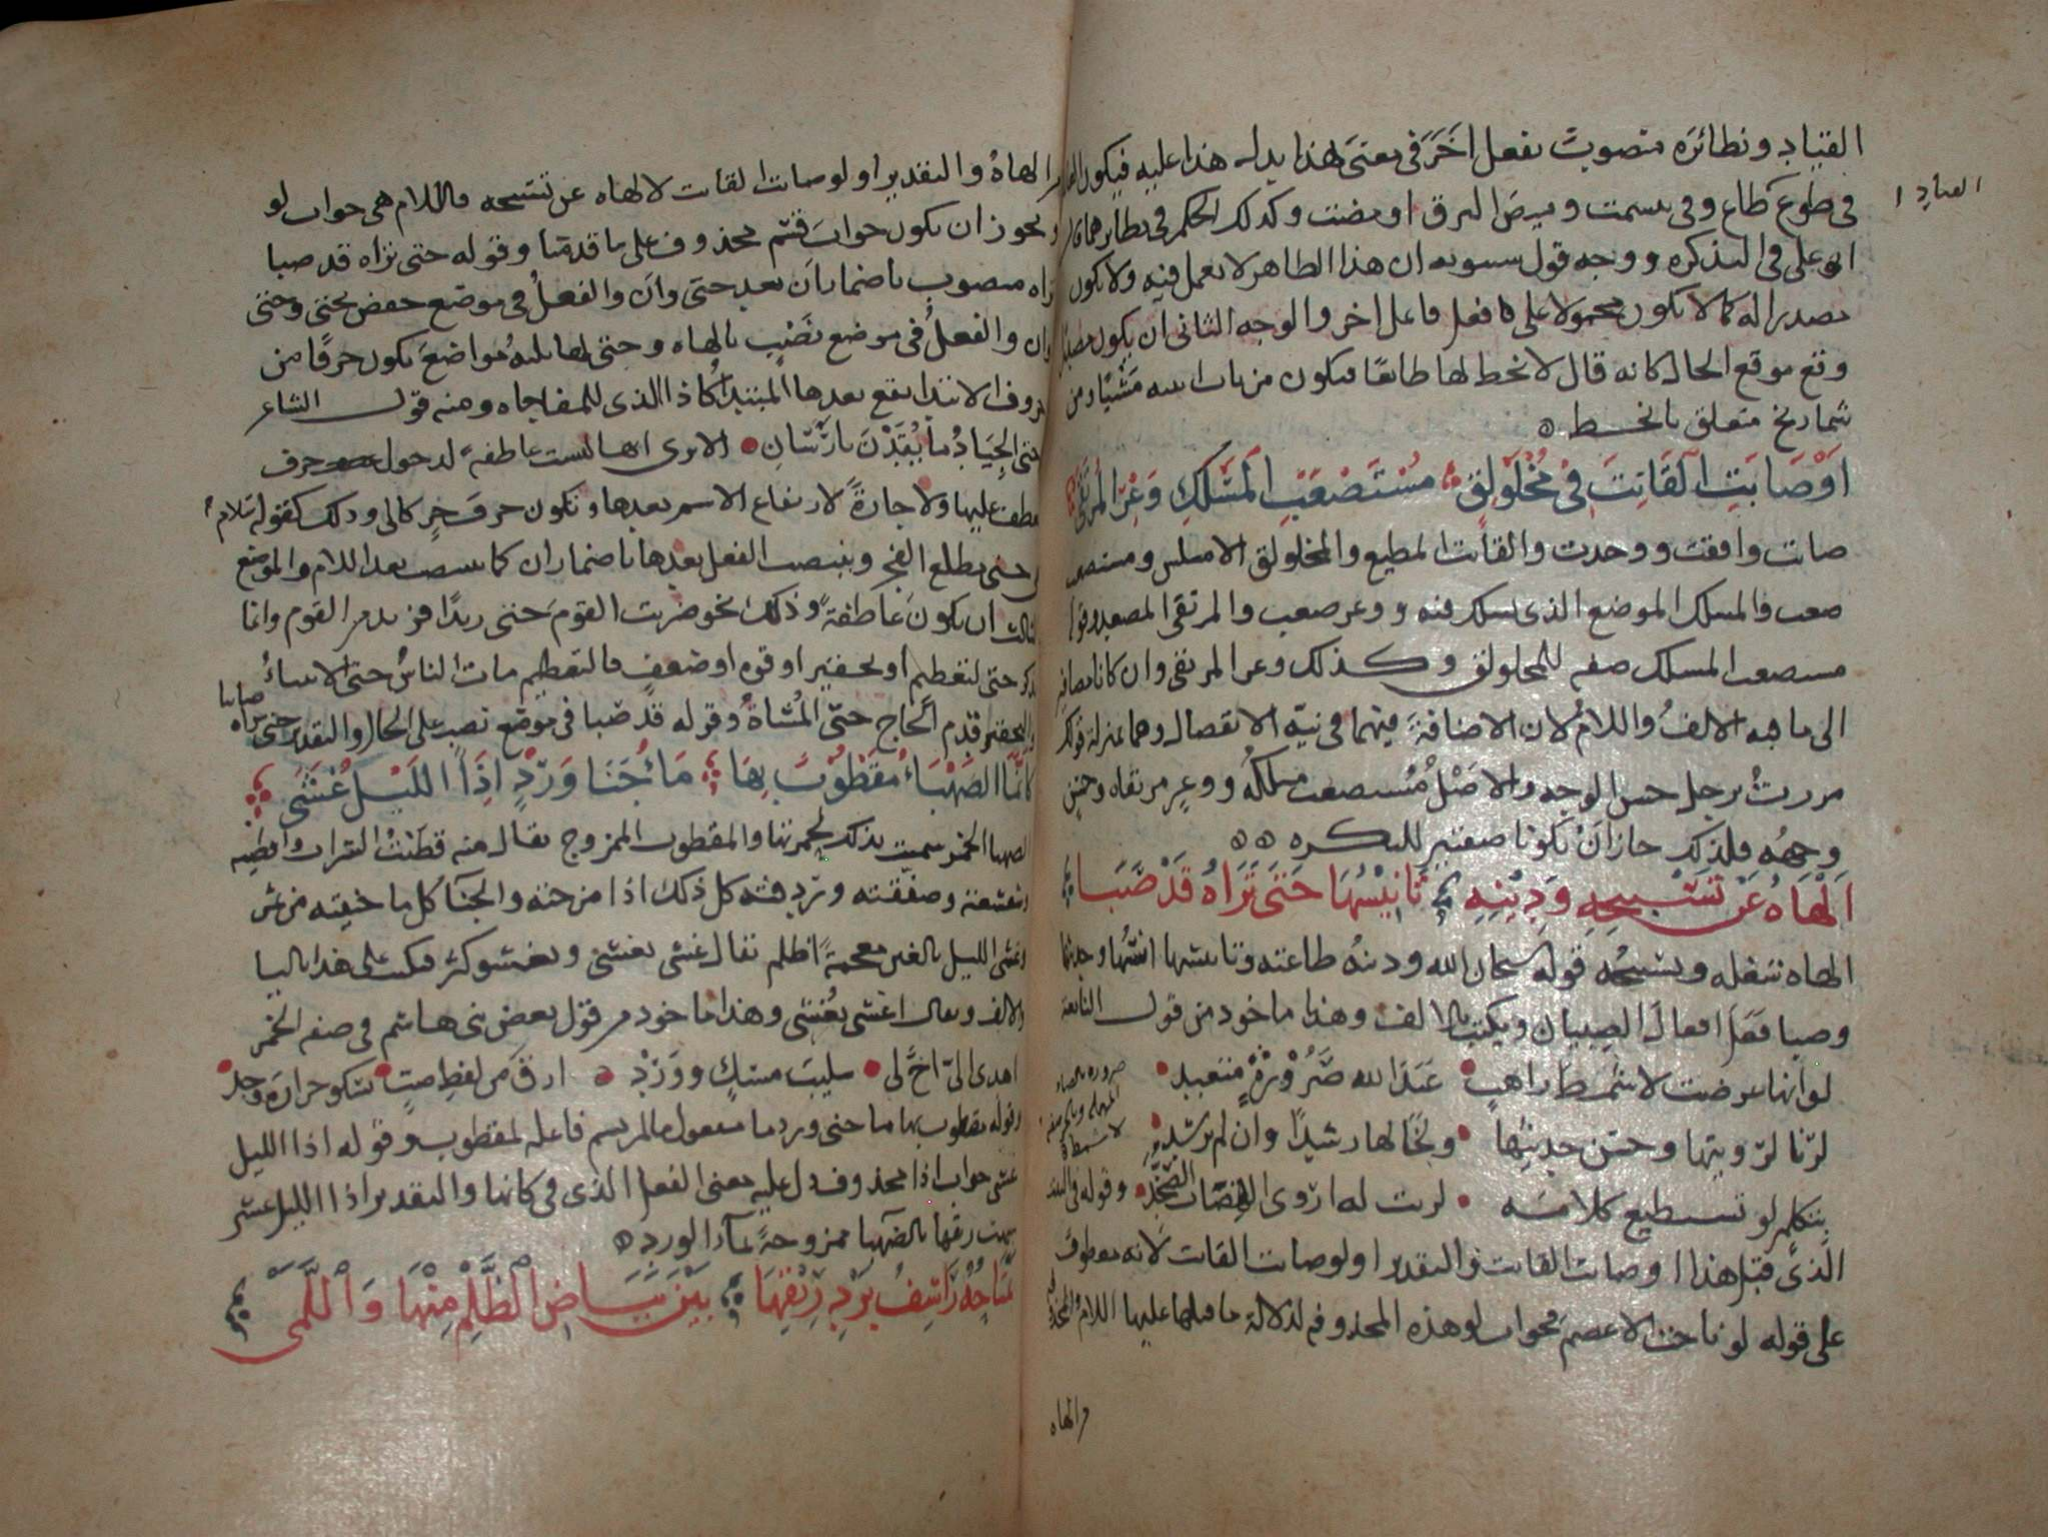 القياد ونظائره منصوب بفعل اخر في معنى هذا يدل هذا عليه فيكون
في طوع كطاع وفي بسمت وميض البرق اومضت وكذلك الحكم في نظائرهما
القياد
ابو على في التذكره ووجه قول سيبويه ان هذا الظاهر لا يعمل فيه ولا يكون
مصدرا له كما لا يكون محمولا على فعل فاعل اخر والوجه الثاني ان يكون
وقع موقع الحال كانه قال لانحط لها طائعا فيكون من باب اتيته مشيا ومن
شماريخ متعلق بانحط
اَوْ صَابَتِ القَانِتَ فِي مُخْلَوْلِقٍ مُسْتَصْعَبِ المَسْلَكِ وَعْرِ المُرْتَقَى
صابت وافقت ووجدت والقانت المطيع والمخلولق الاملس ومستصعب
صعب والمسلك الموضع الذي يسلك فيه ووعر صعب والمرتقى المصعد وقوله
مستصعب المسلك صفه للمخلولق وكذلك وعر المرتقى وان كانا مضافين
الى ما فيه الالف واللام لان الاضافة فيهما في نية الانفصال وهما بمنزلة قولك
مررت برجل حسن الوجه والاصل مستصعب مسلكه ووعر مرتقاه وحسن
وجهه فلذلك جاز ان يكونا صفتين للنكره
اَلْهَاهُ عَنْ تَسْبِيحِهِ وَدِيْنِهِ تَانِيْسُهَا حَتَى تَرَاهُ قَدْ صَبَا
الهاه شغله وتسبيحه قوله سبحان الله ودينه طاعته وتانيسها انسها وحديثها
وصبا فعل افعال الصبيان ويكتب بالالف وهذا ماخوذ من قول النابغة
لو انها عرضت لاشمط راهب عبد الاله صرورة متعبد
صروره بالصاد
لرنا لرويتها وحسن حديثها ولخالها رشدا وان لم يرشد
بتكلم لو تستطيع كلامه لدنت له اروى الهضاب الصخد وقوله في البيت
الذي قبل هذا او صابت القانت والتقدير او لو صابت القانت لانه معطوف
على قوله لو ناجت الاعصم فجواب لو هذه المحذوفه لدلالة ما قبلها عليها اللام
والهاه
الهاه والتقدير او لو صابت القانت لالهاه عن تسبيحه فاللام هي جواب لو
ويجوز ان يكون جواب قسم محذوف على ما قدمنا وقوله حتى تراه قد صبا
تراه منصوب باضمار ان بعد حتى وان والفعل في موضع خفض بحتى وحتى
وان والفعل في موضع نصب بالهاه وحتى لها ثلثه مواضع يكون حرفا من
حروف الابتدا يقع بعدها المبتدا كاذا الذي للمفاجاه ومنه قول الشاعر
حتى الجياد ما يقدن بارسان الا ترى انها ليست عاطفة لدخول حرف
العطف عليها ولا جارة لارتفاع الاسم بعدها وتكون حرف جر كالى وذلك كقوله سلام
هي حتى مطلع الفجر وينتصب الفعل بعدها باضمار ان كما ينتصب بعد اللام والموضع
الثالث ان يكون عاطفة وذلك نحو ضربت القوم حتى زيدا فزيد من القوم وانما
يذكر حتى لتعظيم او تحقير او قوه او ضعف فالتعظيم مات الناس حتى الانبياء
والتحقير قدم الحاج حتى المشاة وقوله قد صبا في موضع نصب على الحال والتقدير حتى تراه صابيا
كَاَنَّمَا الصَهْبَاءُ مَقْطُوْبٌ بِهَا مَاءُ جَنَا وَرْدٍ اِذَا اللَيْلُ غَشَى
الصهبا الخمر سميت بذلك لحمرتها والمقطوب الممزوج يقال منه قطبت الشراب واقطبه
وشعشعته وصفقته كل ذلك اذا مزجته والجنا كل ما جنيته من شي
وغشى الليل بالغين معجمة اظلم يقال غشى يغشى ويغشو كثر فيكتب على هذا باليا
والالف ويقال اغشى يغشى وهذا ماخوذ من قول بعض بني هاشم في صفه الخمر
اهدى الي اخ لي سليب مسك وورد ارق من لفظ صب يشكو حرارة وجد
وقوله مقطوب بها ما جنى ورد ما مفعول مالم يسم فاعله لمقطوب وقوله اذا الليل
غشى جواب اذا محذوف دل عليه معنى الفعل الذي في كانما والتقدير اذا الليل غشى
ريقها بالصهبا ممزوجة بماء الورد
يَمْتَاحُهُ رَاشِفُ بَرْدِ رِيْقِهَا بَيْنَ بَيَاضِ الْظَلْمِ مِنْهَا وَالْلَمَى